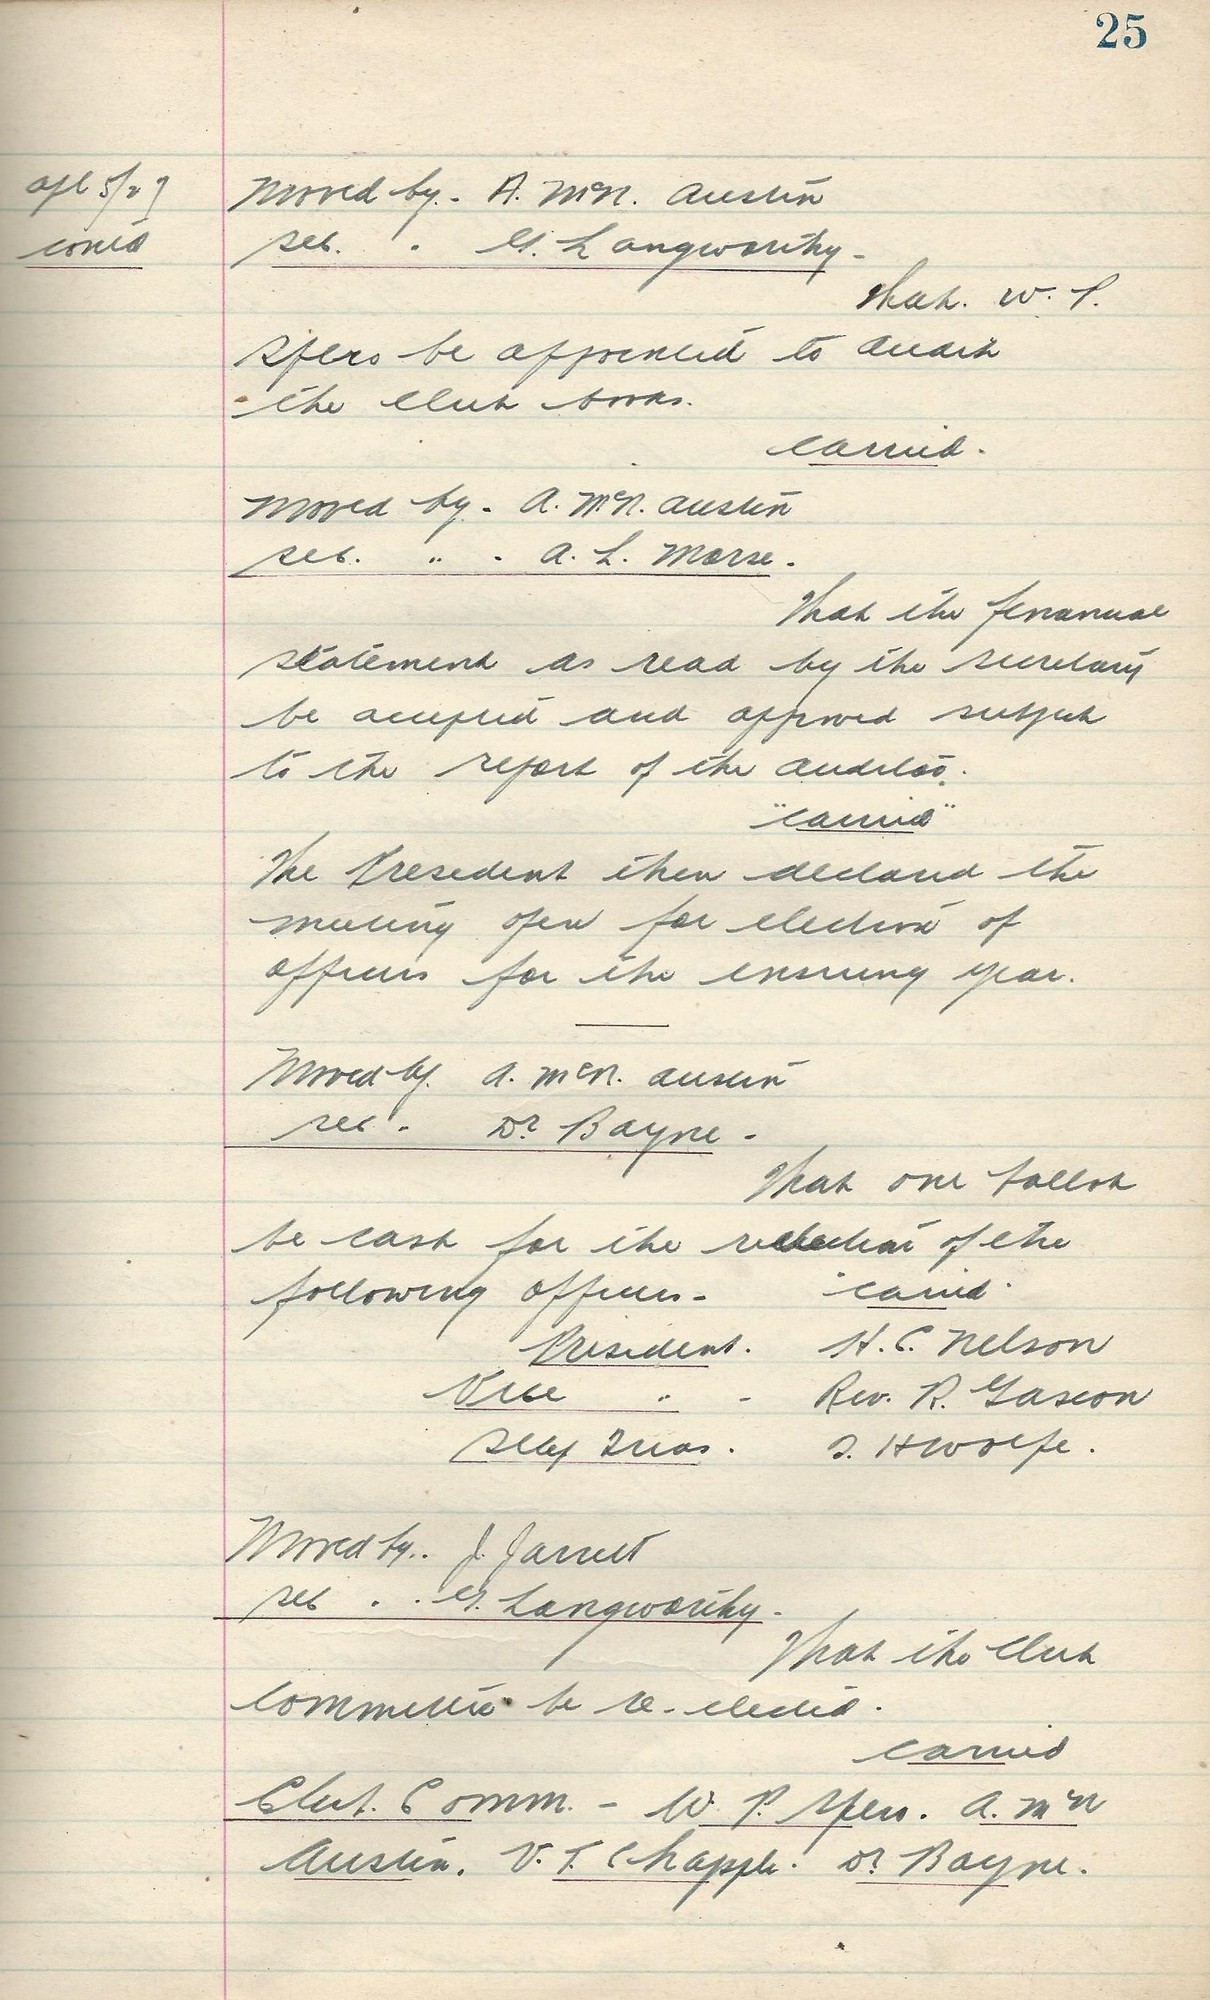 25
Apl 5/27 Moved by - A. McN. Austin
cont'd sec. " G. Langworthy -
That W. P.
Spero be appointed to audit
the Club books.
carried.
Moved by - A. McN. Austin
sec. " - A. L. Morse.
That the financial
statement as read by the secretary
be accepted and approved subject
to the report of the auditor.
"carried"
The President then declared the
meeting open for election of
officers for the ensuing year.
Moved by. A. McN. Austin
sec. - Dr Bayne -
That one ballot
be cast for the reelection of the
following officers - "carried"
President. H. C. Nelson
Vice " - Rev. R. Gascon
Secy Treas. S. H Wolfe.
Moved by.. J. Jarrett
sec . . G. Langworthy.
That the Club
Committee be re-elected.
carried
Club. Comm. - W. P. Spero. A. McN
Austin. V. T. Chapple. Dr Bayne.